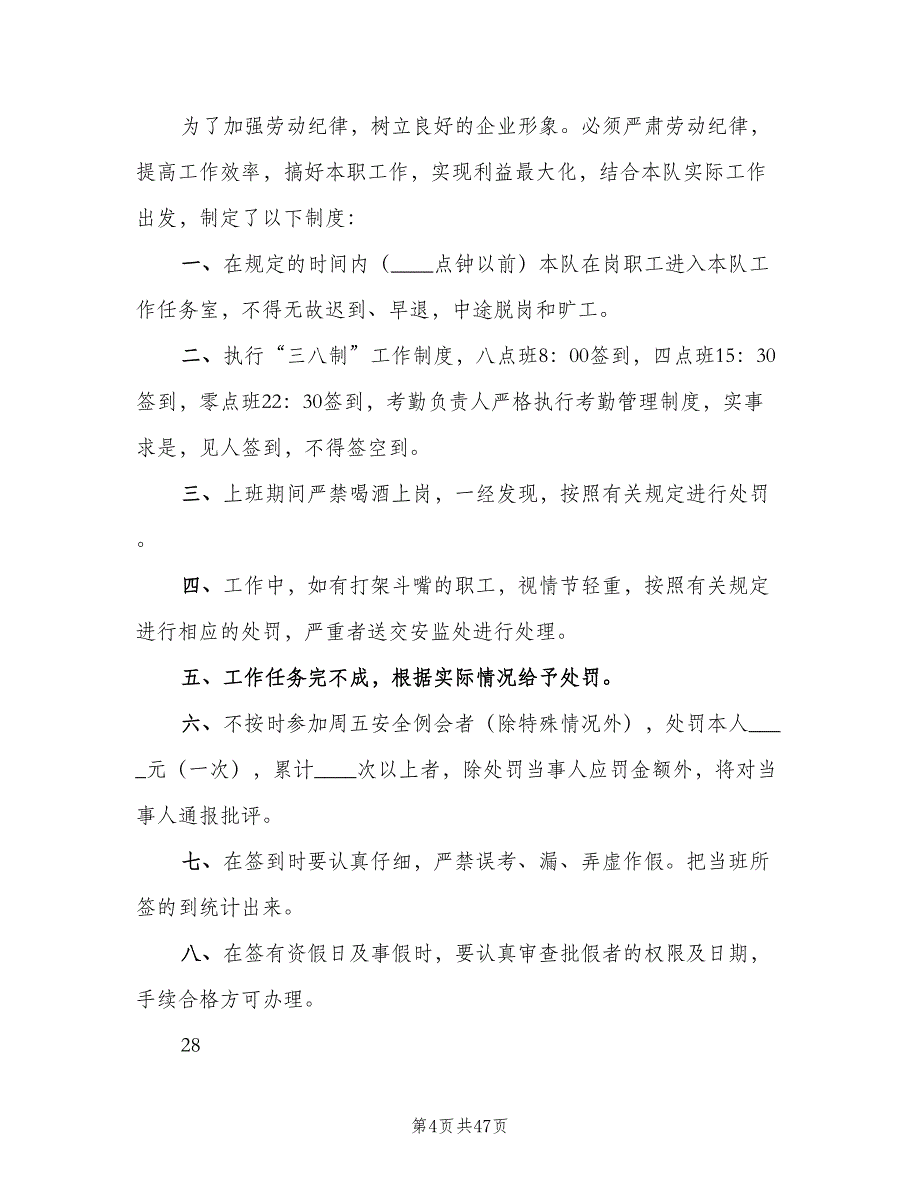 为了加强劳动纪律，树立良好的企业形象。必须严肃劳动纪律，
提高工作效率，搞好本职工作，实现利益最大化，结合本队实际工作
出发，制定了以下制度：
一、在规定的时间内（____点钟以前）本队在岗职工进入本队工
作任务室，不得无故迟到、早退，中途脱岗和旷工。
二、执行“三八制”工作制度，八点班8：00签到，四点班15：30
签到，零点班22：30签到，考勤负责人严格执行考勤管理制度，实事
求是，见人签到，不得签空到。
三、上班期间严禁喝酒上岗，一经发现，按照有关规定进行处罚
。
四、工作中，如有打架斗嘴的职工，视情节轻重，按照有关规定
进行相应的处罚，严重者送交安监处进行处理。
五、工作任务完不成，根据实际情况给予处罚。
六、不按时参加周五安全例会者（除特殊情况外），处罚本人___
_元（一次），累计____次以上者，除处罚当事人应罚金额外，将对当
事人通报批评。
七、在签到时要认真仔细，严禁误考、漏、弄虚作假。把当班所
签的到统计出来。
八、在签有资假日及事假时，要认真审查批假者的权限及日期，
手续合格方可办理。
28
第4页共47页